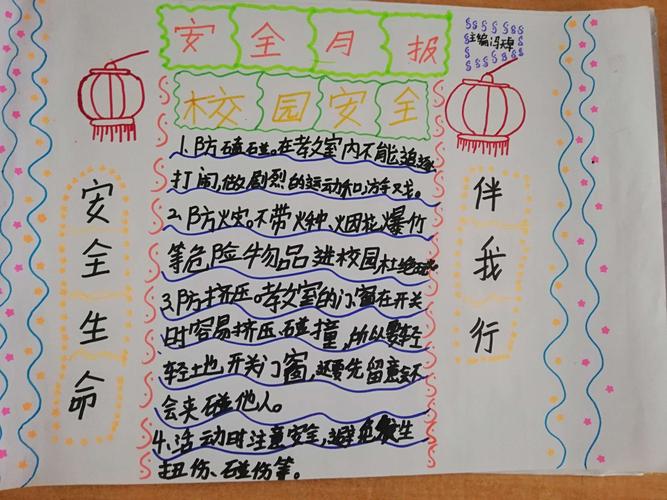 安全月报
主编冯
校园安全
1.防磕碰。在教室内不能追逐
打闹,做剧烈的运动和游戏。
2.防火灾。不带火种、烟花爆竹
等危险物品进校园杜绝
3.防挤压。教室的门窗在开关
时容易挤压碰撞,所以要轻
轻土也开关门窗,还要先留意会不
会夹碰他人。
4.活动时注意安全,避免发生
扭伤、碰伤等。
安全生命
伴我行